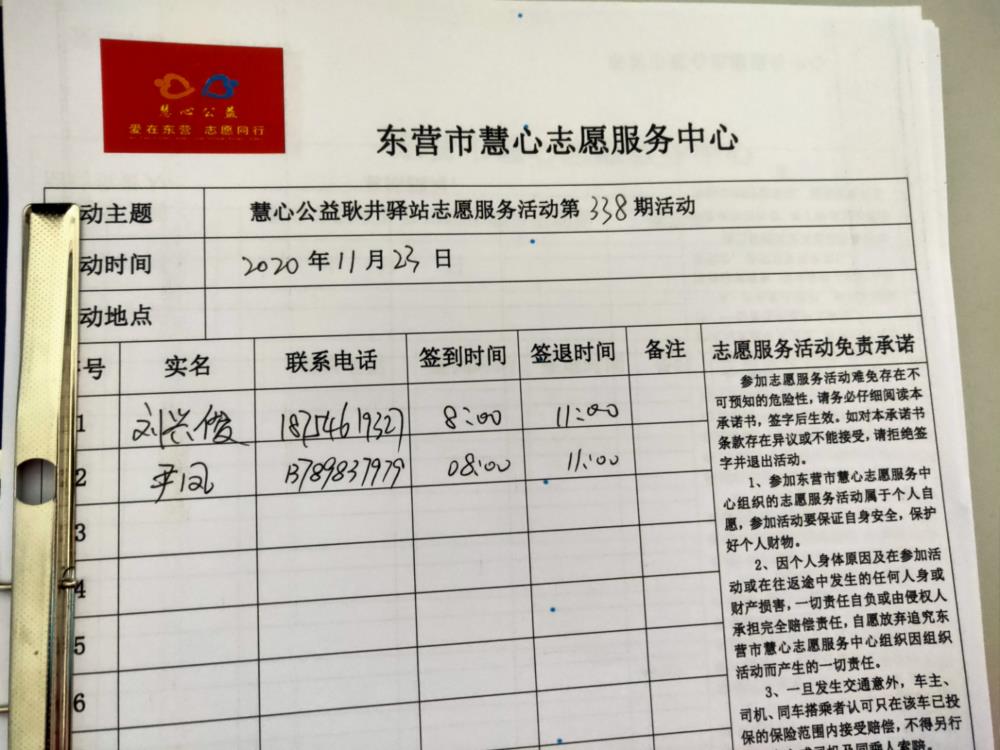 慧心公益
爱在东营 志愿同行
东营市慧心志愿服务中心
动主题 慧心公益耿井驿站志愿服务活动第338期活动
动时间 2020年11月23日
动地点
号 实名 联系电话 签到时间 签退时间 备注 志愿服务活动免责承诺
1 刘兴俊 18754619327 8:00 11:00
2 尹凤 13789837979 08:00 11:00
3
4
5
6
参加志愿服务活动难免存在不
可预知的危险性，请务必仔细阅读本
承诺书，签字后生效。如对本承诺书
条款存在异议或不能接受，请拒绝签
字并退出活动。
1、参加东营市慧心志愿服务中
心组织的志愿服务活动属于个人自
愿，参加活动要保证自身安全，保护
好个人财物。
2、因个人身体原因及在参加活
动或在往返途中发生的任何人身或
财产损害，一切责任自负或由侵权人
承担完全赔偿责任，自愿放弃追究东
营市慧心志愿服务中心组织因组织
活动而产生的一切责任。
3、一旦发生交通意外，车主、
司机、同车搭乘者认可只在该车已投
保的保险范围内接受赔偿，不得另行